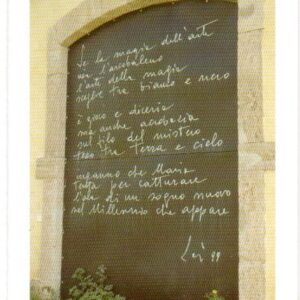 Se la magia dell'arte
è un arcobaleno
l'arte della magia
sta tra bianco e nero
è gioco e diceria
ma anche acrobazia
sul filo del mistero
teso tra terra e cielo
inganno che Maria
per catturare
di un sogno nuovo
nel Millennio che appare
99